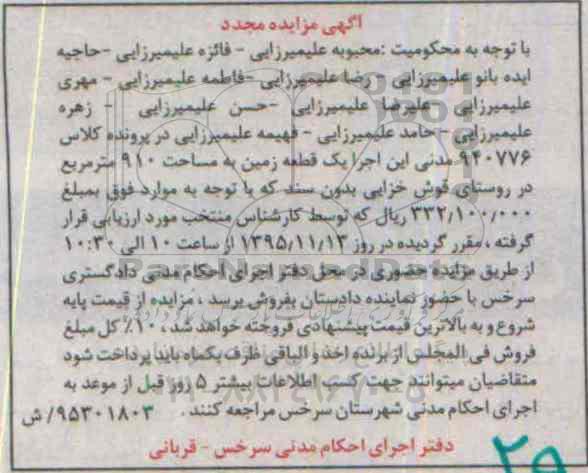 آگهی مزایده مجدد
با توجه به محکومیت :محبوبه علیمیرزایی - فائزه علیمیرزایی -حاجیه
ایده بانو علیمیرزایی - رضا علیمیرزایی -فاطمه علیمیرزایی - مهری
علیمیرزایی - علیرضا علیمیرزایی -حسن علیمیرزایی - زهره
علیمیرزایی - حامد علیمیرزایی - فهیمه علیمیرزایی در پرونده کلاس
۹۴۰۷۷۶ مدنی این اجرا یک قطعه زمین به مساحت ۹۱۰ مترمربع
در روستای قوش خزایی بدون سند که با توجه به موارد فوق بمبلغ
۳۳۲٫۱۰۰٫۰۰۰ ریال که توسط کارشناس منتخب مورد ارزیابی قرار
گرفته ، مقرر گردیده در روز ۱۳۹۵٫۱۱٫۱۳ از ساعت ۱۰ الی ۱۰:۳۰
از طریق مزایده حضوری در محل دفتر اجرای احکام مدنی دادگستری
سرخس با حضور نماینده دادستان بفروش برسد ، مزایده از قیمت پایه
شروع و به بالاترین قیمت پیشنهادی فروخته خواهد شد ، ۱۰٪ کل مبلغ
فروش فی المجلس از برنده اخذ و الباقی ظرف یکماه باید پرداخت شود
متقاضیان میتوانند جهت کسب اطلاعات بیشتر ۵ روز قبل از موعد به
اجرای احکام مدنی شهرستان سرخس مراجعه کنند . ۹۵۳۰۱۸۰۳/ش
دفتر اجرای احکام مدنی سرخس - قربانی
۲۹